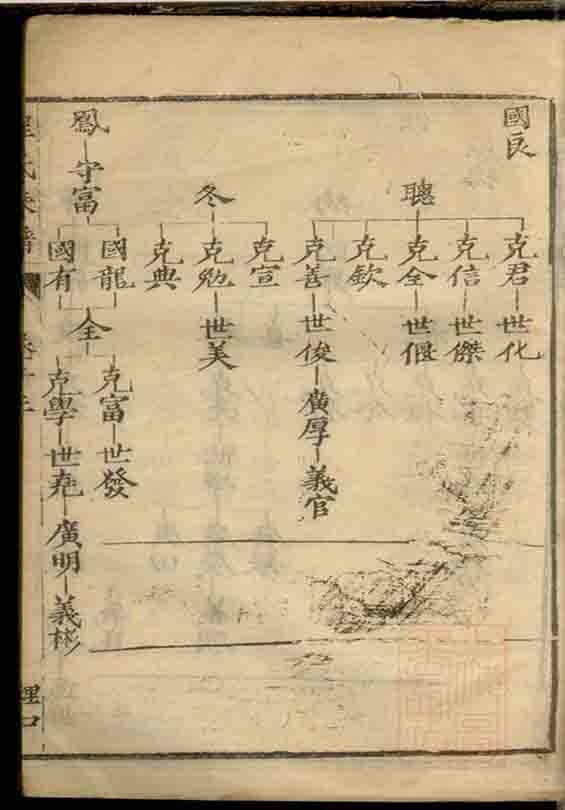 國良
聰
克君 世化
克信 世傑
克全 世偃
克欽
克善 世俊 廣厚 義官
冬
克宣
克勉 世美
克典
鳳 守富
國龍
國有
仝
克富 世發
克學 世堯 廣明 義彬